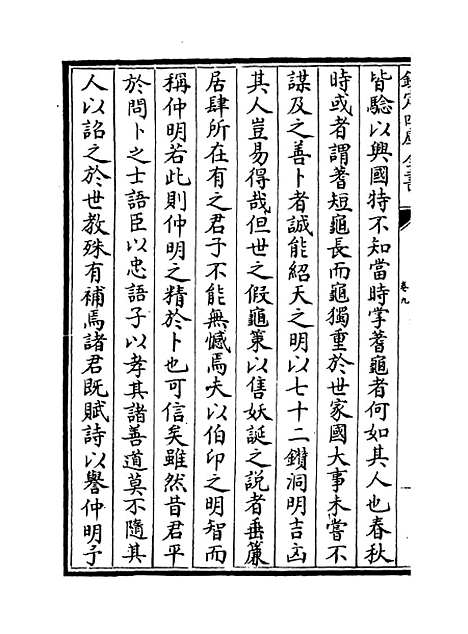 欽定四庫全書
卷九
皆驗以興國特不知當時掌蓍龜者何如其人也春秋
時或者謂蓍短龜長而龜獨重於世家國大事未嘗不
謀及之善卜者誠能紹天之明以七十二鑽洞明吉凶
其人豈易得哉但世之假龜策以售妖誕之說者垂簾
居肆所在有之君子不能無憾焉夫以伯印之明智而
稱仲明若此則仲明之精於卜也可信矣雖然昔君平
於問卜之士語臣以忠語子以孝其諸善道莫不隨其
人以詔之於世教殊有補焉諸君既賦詩以譽仲明予